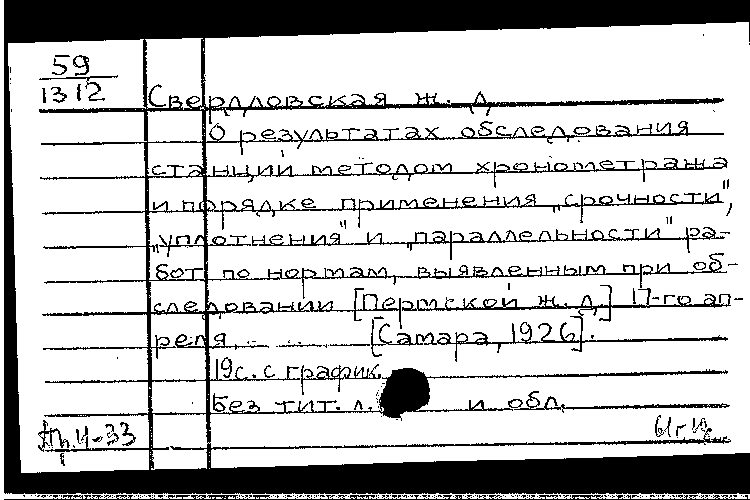 59
1312
Свердловская ж. д.
О результатах обследования
станций методом хронометража
и порядке применения „срочности",
„уплотнения" и „параллельности" ра-
бот по нормам, выявленным при об-
следовании [Пермской ж. д.] 17-го ап-
реля, .. .. [Самара, 1926].
19 с. с график.
Без тит. л. и обл.